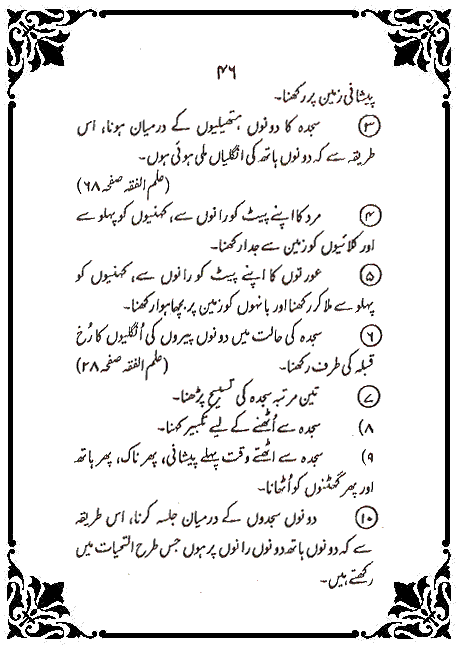 ۴۶
پیشانی زمین پر رکھنا۔
۳ سجدہ کا دونوں ہتھیلیوں کے درمیان ہونا، اس
طریقہ سے کہ دونوں ہاتھ کی انگلیاں ملی ہوئی ہوں۔
(علم الفقہ صفحہ ۶۸)
۴ مرد کا اپنے پیٹ کو رانوں سے، کہنیوں کو پہلو سے
اور کلائیوں کو زمین سے جدا رکھنا۔
۵ عورتوں کا اپنے پیٹ کو رانوں سے، کہنیوں کو
پہلو سے ملا کر رکھنا اور بانہوں کو زمین پر بچھا ہوا رکھنا۔
۶ سجدہ کی حالت میں دونوں پیروں کی اُنگلیوں کا رُخ
قبلہ کی طرف رکھنا۔ (علم الفقہ صفحہ ۲۸)
۷ تین مرتبہ سجدہ کی تسبیح پڑھنا۔
۸) سجدہ سے اُٹھنے کے لیے تکبیر کہنا۔
۹) سجدہ سے اٹھتے وقت پہلے پیشانی، پھر ناک، پھر ہاتھ
اور پھر گھٹنوں کو اُٹھانا۔
۱۰ دونوں سجدوں کے درمیان جلسہ کرنا، اس طریقہ
سے کہ دونوں ہاتھ دونوں رانوں پر ہوں جس طرح التحیات میں
رکھتے ہیں۔